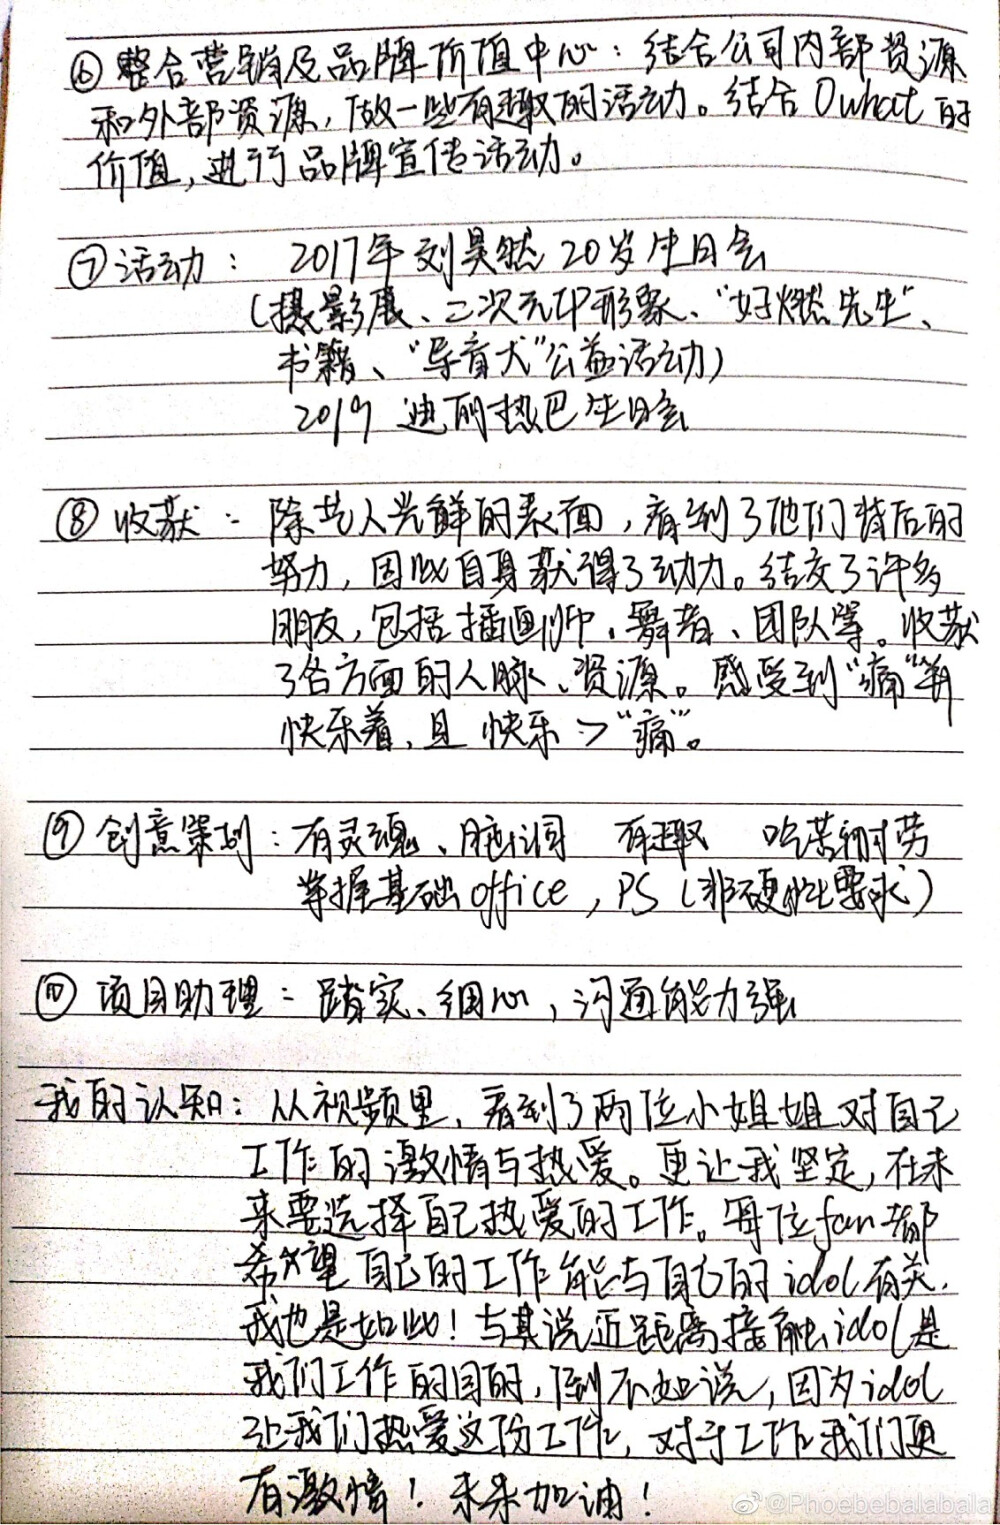 ⑥ 整合营销及品牌价值中心：结合公司内部资源
和外部资源，做一些有趣的活动。结合Owhat的
价值，进行品牌宣传活动。
⑦ 活动： 2017年刘昊然20岁生日会
（摄影展、二次元印形象、“好燃先生”、
书籍、“导盲犬”公益活动）
2019 迪丽热巴生日会
⑧ 收获： 除艺人光鲜的表面，看到了他们背后的
努力，因此自身获得了动力。结交了许多
朋友，包括插画师、舞者、团队等。收获
了各方面的人脉、资源。感受到“痛”并
快乐着，且 快乐＞“痛”。
⑨ 创意策划：有灵魂、脑洞 有趣 吃苦耐劳
掌握基础office，PS（非硬性要求）
⑩ 项目助理：踏实、细心，沟通能力强
我的认知：从视频里，看到了两位小姐姐对自己
工作的激情与热爱。更让我坚定，在未
来要选择自己热爱的工作。每位fan都
希望自己的工作能与自己的idol有关。
我也是如此！与其说近距离接触idol是
我们工作的目的，倒不如说，因为idol
让我们热爱这份工作，对于工作我们更
有激情！未来加油！
@Phoebebalabala